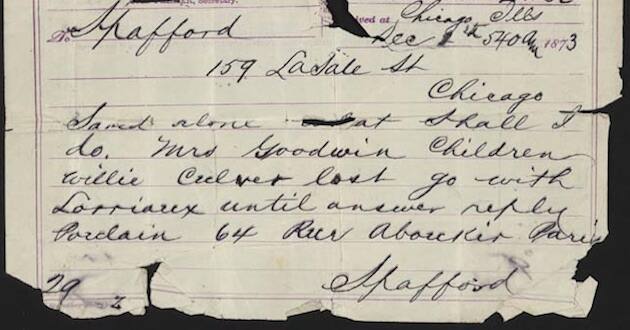 Secretary.
Received at Chicago Ills
To Spafford
Dec 1st 540 am 1873
159 LaSale St
Chicago
Saved alone what shall I
do. Mrs Goodwin Children
Willie Culver lost go with
Lorriaux until answer reply
Pordain 64 Rue Aboukir Paris
Spafford
29